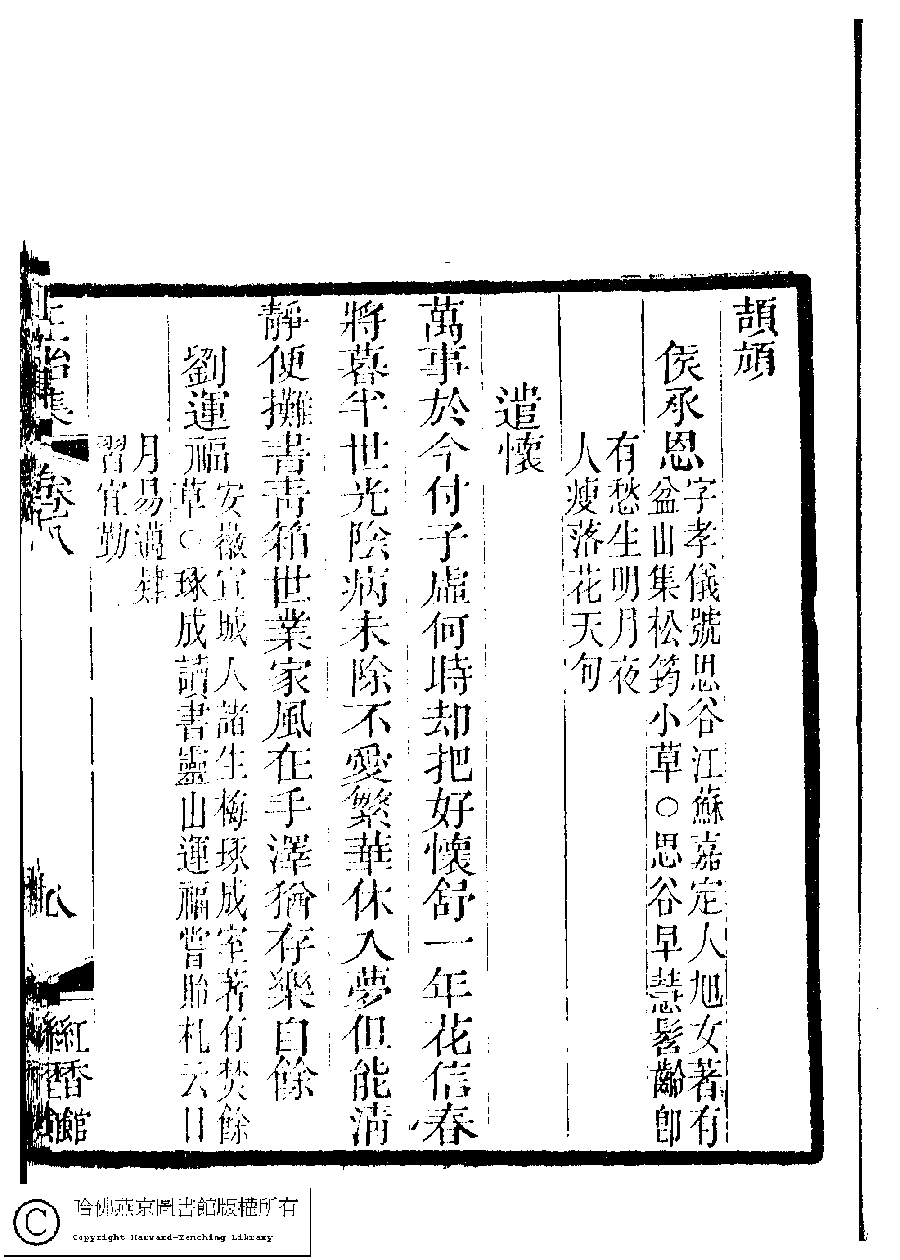 頡頏
侯承恩
字孝儀號思谷江蘇嘉定人旭女著有
盆山集松筠小草○思谷早慧髫齡卽
有愁生明月夜
人瘦落花天句
遣懷
萬事於今付子虛何時却把好懷舒一年花信春
將暮半世光陰病未除不愛繁華休入夢但能清
靜便攤書靑箱世業家風在手澤猶存樂自餘
劉運福
安徽宣城人諸生梅琢成室著有焚餘
草○琢成讀書靈山運福嘗貽札云日
月易邁肄
習宜勤
正始集
卷八
八
紅香館
哈佛燕京圖書館版權所有
Copyright Harvard-Yenching Library